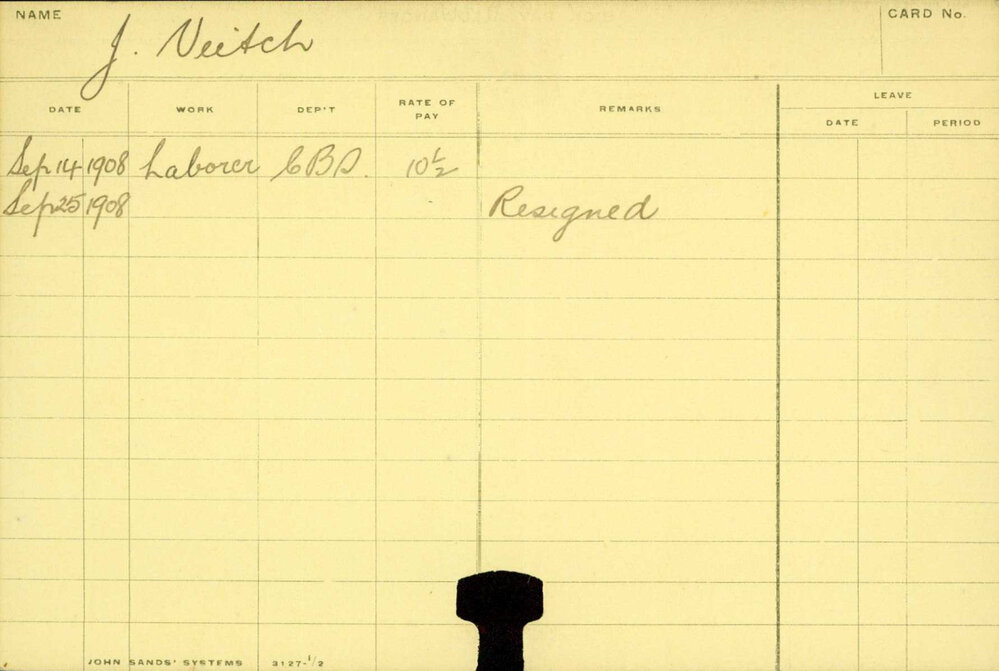 NAME J. Veitch CARD No.
DATE WORK DEP'T RATE OF PAY REMARKS LEAVE
DATE PERIOD
Sep 14 1908 Laborer CBD. 10 1/2
Sep 25 1908 Resigned
JOHN SANDS' SYSTEMS 3127-1/2